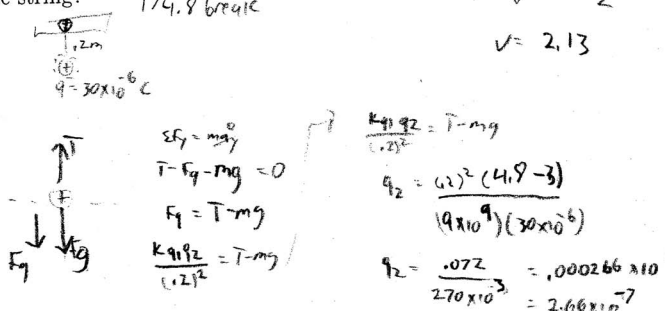 string.
T74.8 breaks
v = 2.13
.2m
+
q = 30x10^-6 C
T
+
Fq
Fg
ΣFy = may^0
T - Fq - mg = 0
Fq = T - mg
Kq1q2/(.2)² = T - mg
Kq1q2/(.2)² = T - mg
q2 = (.2)² (4.8 - 3) / (9x10^9)(30x10^-6)
q2 = .072 / 270x10^3 = .000266 x10
= 2.66x10^-7